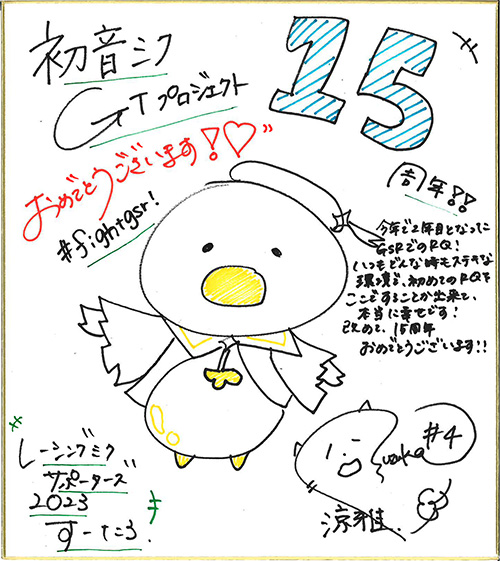 初音ミク
GTプロジェクト
15
周年!!
おめでとうございます!♡
#fightgsr!
今年で2年目となった
GSRでのRQ!
いつもどんな時もステキな
環境で、初めてのRQを
ここですることが出来て、
本当に幸せです!
改めて、15周年
おめでとうございます!!
レーシングミク
サポーターズ
2023
すーたころ.
#4
涼雅.